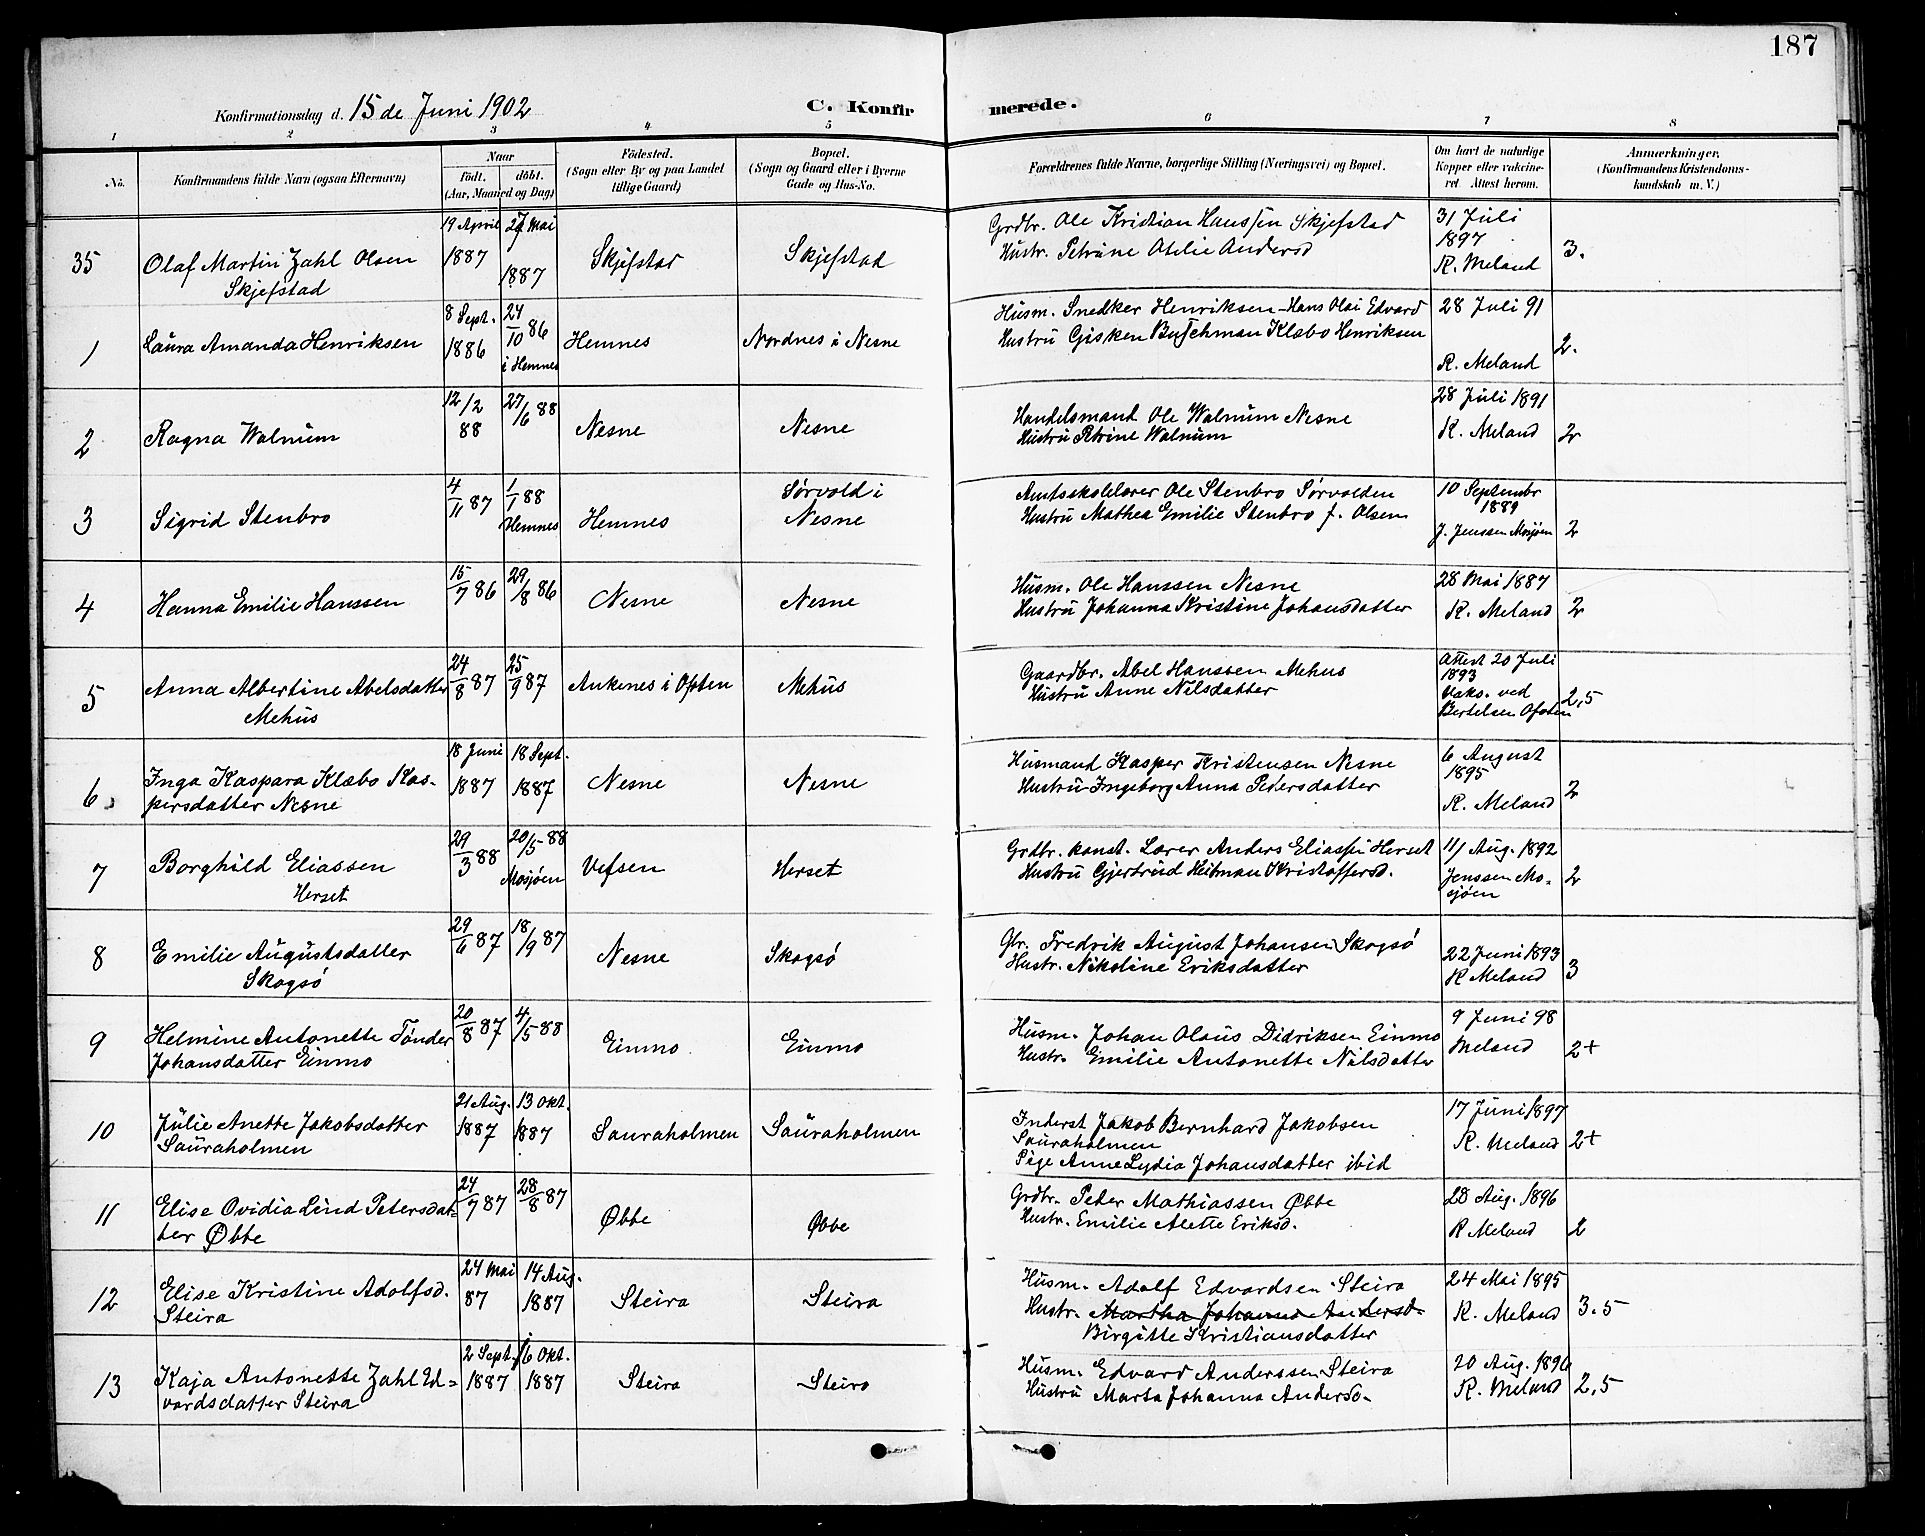 187
Konfirmationsdag d. 15 de Juni 1902
C. Konfirmerede.
1 2 3 4 5 6 7 8
No.
Konfirmandens fulde Navn (ogsaa Efternavn)
Naar
födt. döbt.
(Aar, Maaned og Dag)
Födested.
(Sogn eller By og paa Landet
tillige Gaard)
Bopæl.
(Sogn og Gaard eller i Byerne
Gade og Hus-No.
Forældrenes fulde Navne, borgerlige Stilling (Næringsvei) og Bopæl.
Om havt de naturlige
Kopper eller vakcine-
ret Attest herom.
Anmærkninger.
(Konfirmandens Kristendoms-
kundskab m. V.)
35 Olaf Martin Zahl Olsen
Skjefstad
19 April
1887
27 Mai
1887
Skjefstad
Skjefstad
Grdbr. Ole Kristian Hanssen Skjefstad
Hustr. Petrine Otelie Andersd
31 Juli
1897
K. Meland
3.
1 Laura Amanda Henriksen
8 Sept.
1886
24/10 86
i Hemnes
Hemnes
Nordnes i Nesne
Husm. Snedker Henriksen - Hans Olai Edvard
Hustru Gisken Klæbo Henriksen
28 Juli 91
K. Meland
2.
2 Ragna Walnum
12/2
88
27/6 88
Nesne
Nesne
Handelsmand Ole Walnum Nesne
Hustru Petrine Walnum
28 Juli 1891
K. Meland
2
3 Sigrid Stenbro
4/11 87
1/1 88
Hemnes
Hemnes
Sørvold i
Nesne
Amtsskolelærer Ole Stenbro Sørvolden
Hustru Mathea Emilie Stenbro f. Olsen
10 Septembr
1889
J. Jenssen Mosjøen
2
4 Hanna Emilie Hanssen
15/7 86
29/8 86
Nesne
Nesne
Husm. Ole Hanssen Nesne
Hustru Johanna Kristine Johansdatter
28 Mai 1887
K. Meland
2
5 Anna Albertine Abelsdatter
Mehus
24/8 87
25/9 87
Ankenes i Ofoten
Mehus
Gaardbr. Abel Hanssen Mehus
Hustru Anne Nilsdatter
Attest 20 Juli
1893
Vaks. ved
Bertelsen Ofoten
2,5
6. Inga Kaspara Klæbo Kas-
persdatter Nesne
18 Juni
1887
18 Sept.
1887
Nesne
Nesne
Husmand Kasper Kristensen Nesne
Hustru Ingeborg Anna Pedersdatter
6 August
1895
K. Meland
2
7 Borghild Eliassen
Herset
29/3 88
20/5-88
Mosjøen
Vefsen
Herset
Grdbr. konst. Lærer Anders Eliassen Herset
Hustru Gjertrud Heitman Kristoffersd.
11/ Aug. 1892
Jenssen Mo-
sjøen
2
8 Emilie Augustsdatter
Skogsø
29/6 87
18/9 87
Nesne
Skogsø
Gbr. Fredrik August Johansen Skogsø
Hustr. Nikoline Eriksdatter
22 Juni 1893
K Meland
3
9 Helmine Antonette Tønder
Johansdatter Einmo
20/8 87
4/5 88
Einmo
Einmo
Husm. Johan Olaus Didriksen Einmo
Hustr. Emilie Antonette Nilsdatter
9 Juni 98
Meland
2+
10 Julie Anette Jakobsdatter
Sauraholmen
21 Aug.
1887
13 Okt.
1887
Sauraholmen
Sauraholmen
Inderst Jakob Bernhard Jakobsen
Sauraholmen
Pige Anne Lydia Johansdatter ibid
17 Juni 1897
K. Meland
2+
11 Elise Ovidia Lind Petersdat-
ter Øbbe
24/7 87
28/8 87
Øbbe
Øbbe
Grdbr. Peter Mathiassen Øbbe
Hustr. Emilie Alette Eriksd.
28 Aug. 1896
K Meland
2
12 Elise Kristine Adolfsd.
Steira
24 Mai
87
14 Aug.
1887
Steira
Steira
Husm. Adolf Edvardsen Steira
Hustr. Martha Johanna Andersd.
Birgitte Kristiansdatter
24 Mai 1895
K. Meland
3,5
13 Kaja Antonette Zahl Ed-
vardsdatter Steira
2 Sept.
1887
16 Okt.
1887
Steira
Steira
Husm. Edvard Anderssen Steira
Hustru Marta Johanna Andersd.
20 Aug. 1896
K. Meland
2,5